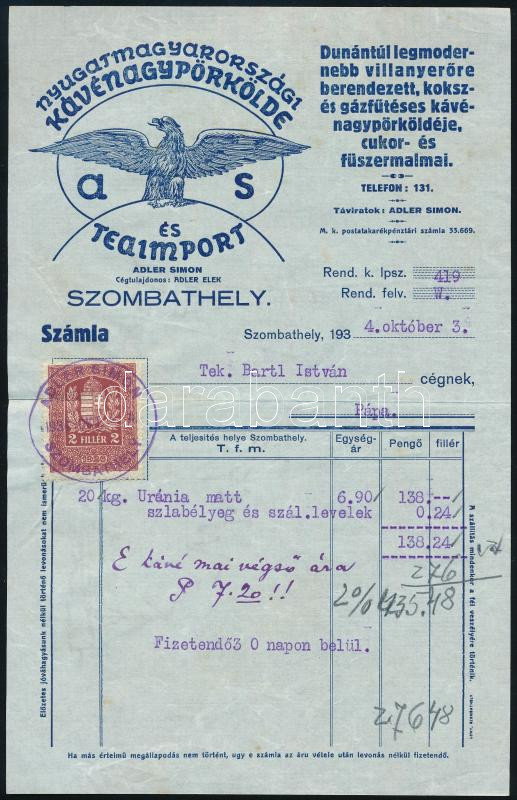 NYUGATMAGYARORSZÁGI
KÁVÉNAGYPÖRKÖLDE
a S
ÉS
TEAIMPORT
ADLER SIMON
Cégtulajdonos: ADLER ELEK
SZOMBATHELY.
Dunántúl legmoder-
nebb villanyerőre
berendezett, koksz-
és gázfűtéses kávé-
nagypörköldéje,
cukor- és
fűszermalmai.
TELEFON: 131.
Táviratok: ADLER SIMON.
M. k. postatakarékpénztári számla 33.669.
Rend. k. lpsz. 419
Rend. felv. W.
Számla
Szombathely, 193 4.október 3.
Tek. Bartl István cégnek,
Pápa.
ADLER SIMON
SZOMBATHELY
2 FILLÉR 2
darabanth
A teljesítés helye Szombathely.
T. f. m.
Egység-
ár
Pengő fillér
20 kg. Uránia matt 6.90 138.--
szlabélyeg és szál.levelek 0.24
138.24
E kávé mai végső ára
P 7.20!!
276
2% 135.48
Fizetendő3 0 napon belül.
27648
Előzetes jóváhagyásunk nélkül történő levonásokat nem ismerünk
A szállítás mindenkor a fél veszélyére történik.
Ha más értelmű megállapodás nem történt, ugy e számla az áru vétele után levonás nélkül fizetendő.